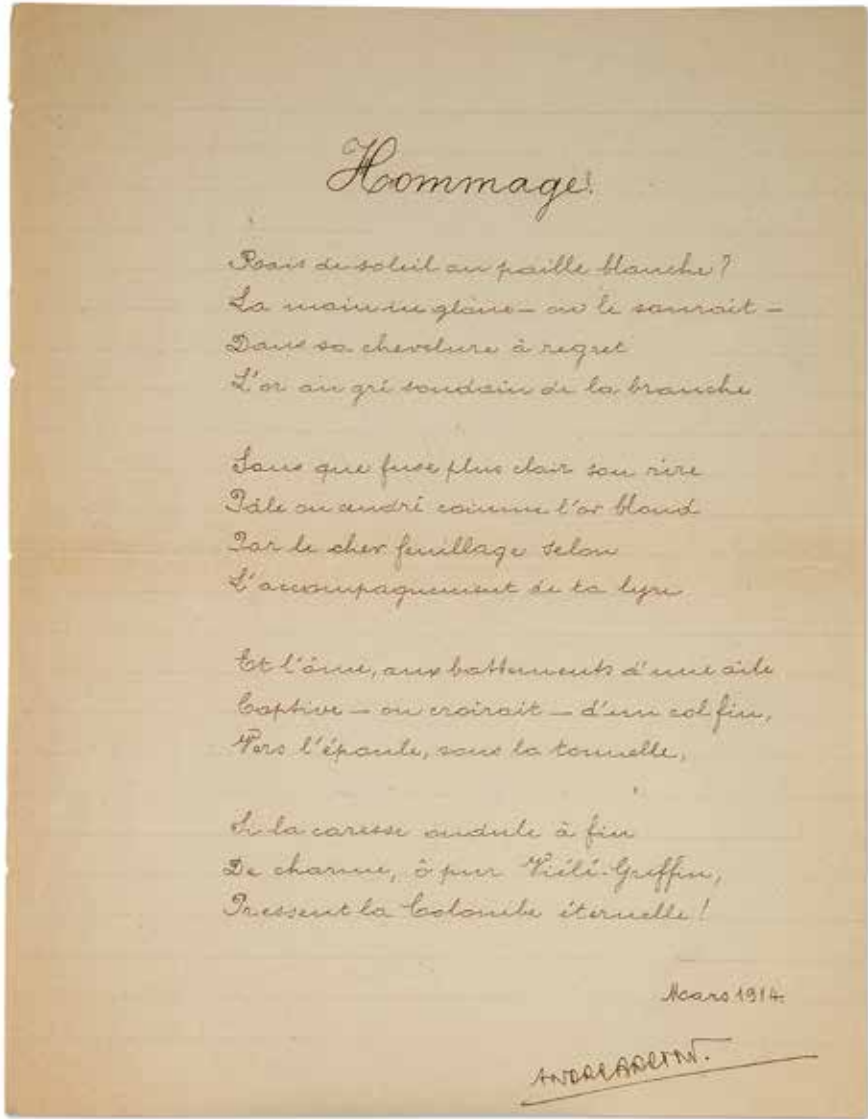 Hommage!
Rais de soleil ou paille blanche ?
La main en glane – on le saurait –
Dans sa chevelure à regret
L'or au gré soudain de la branche
Sans que fuse plus clair son rire
Pâle ou cendré comme l'or blond
Par le cher feuillage selon
L'accompagnement de ta lyre
Et l'âme, aux battements d'une aile
Captive – on croirait – d'un col fin,
Vers l'épaule, sous la tonnelle,
Si la caresse ondule à fin
De charme, ô pur Viélé-Griffin,
Pressent la Colombe éternelle !
Mars 1914.
ANDRÉ BRETON.